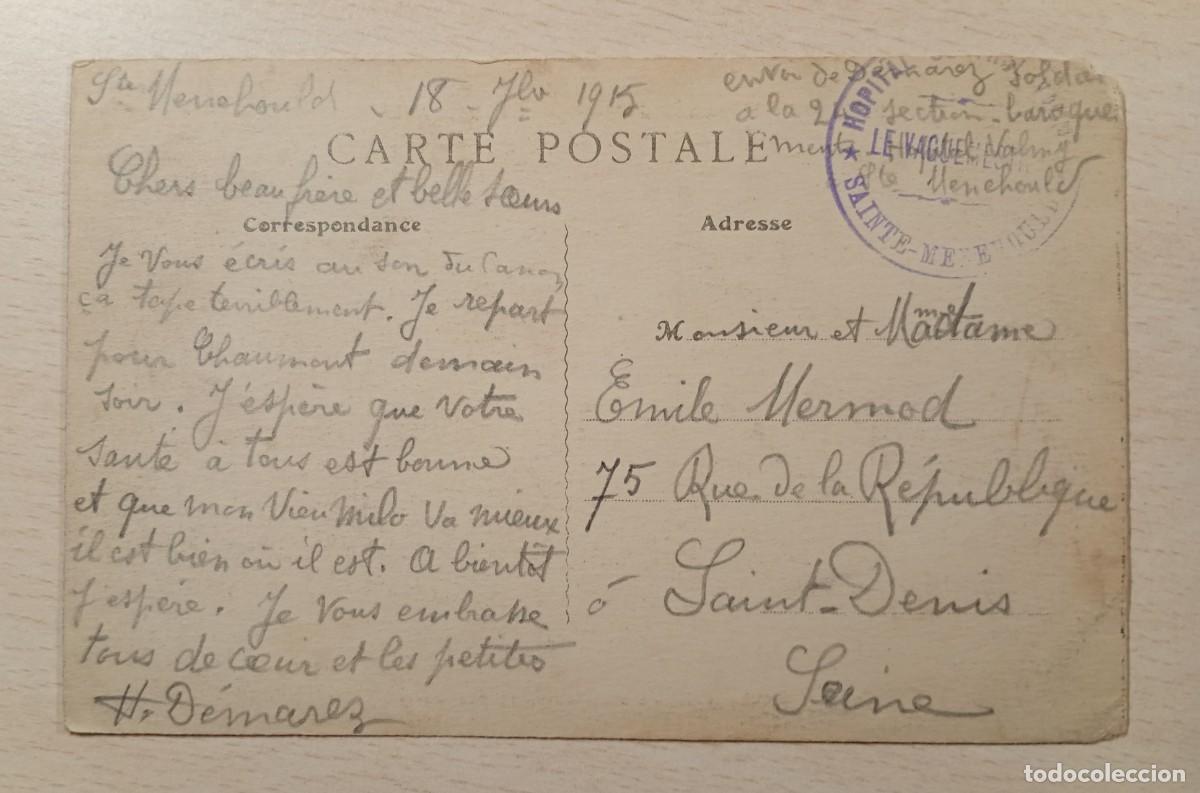 Ste Menehould, 18 7bre 1915
envoi de Démarez Soldat
à la 24 section baraque
Hôpital Valmy
Ste Menehould
HOPITAL
LE VAGUEMESTRE
★ SAINTE-MENEHOULD
CARTE POSTALE
Chers beau frère et belle sœurs
Correspondance
Adresse
Je Vous écris au son du Canon
ça tape terriblement. Je repart
pour Chaumont demain
soir. J'éspère que Votre
santé à tous est bonne
et que mon Vieu Milo Va mieux
il est bien où il est. A bientôt
j'espère. Je Vous embrasse
tous de cœur et les petites
H. Démarez
Monsieur et Madame
Emile Mermod
75 Rue de la République
à Saint-Denis
Seine
todocoleccion